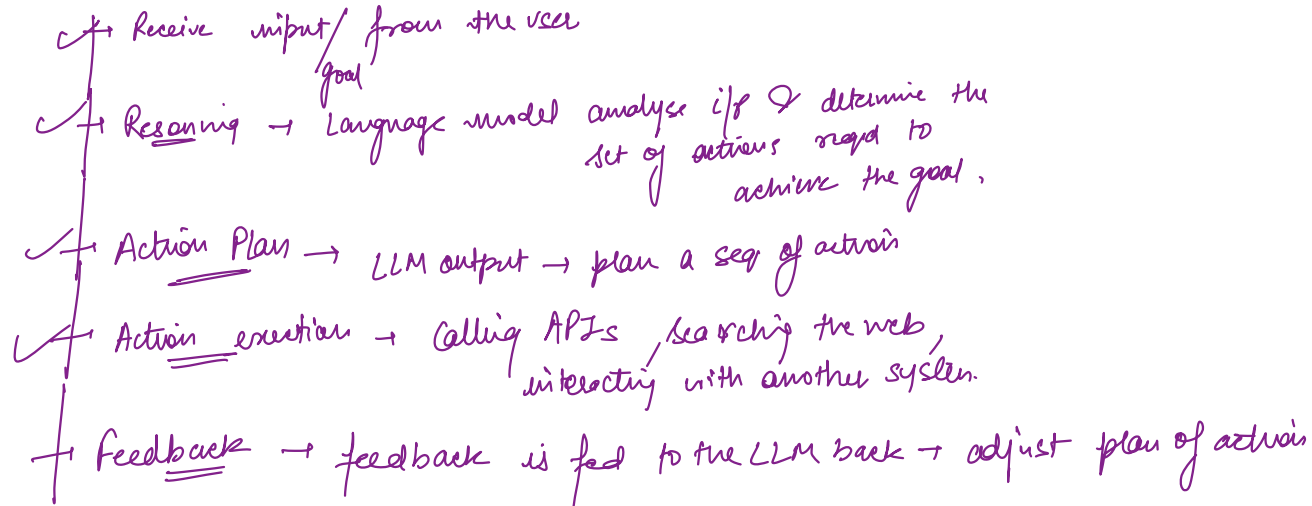 Receive input/ from the user
goal
Resoning → Language model analyse i/p & determine the
set of actions reqd to
achieve the goal.
Action Plan → LLM output → plan a seq of action
Action exection → Calling APIs, searching the web,
interacting with another system.
Feedback → feedback is fed to the LLM back → adjust plan of action